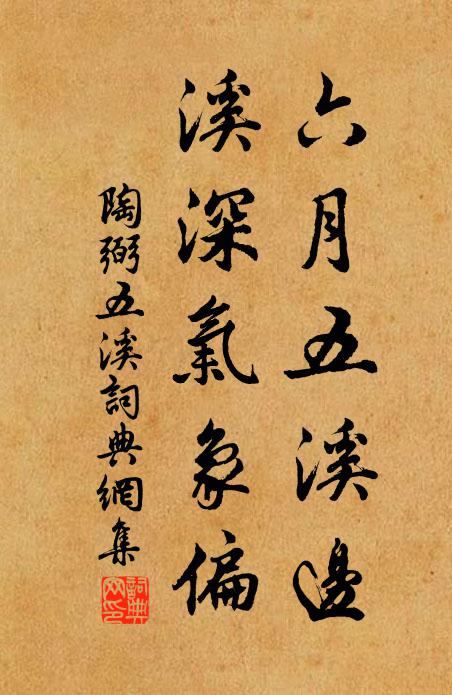 六月五溪邊
溪深氣象偏
陶弼五溪詞典網集
詞典網印